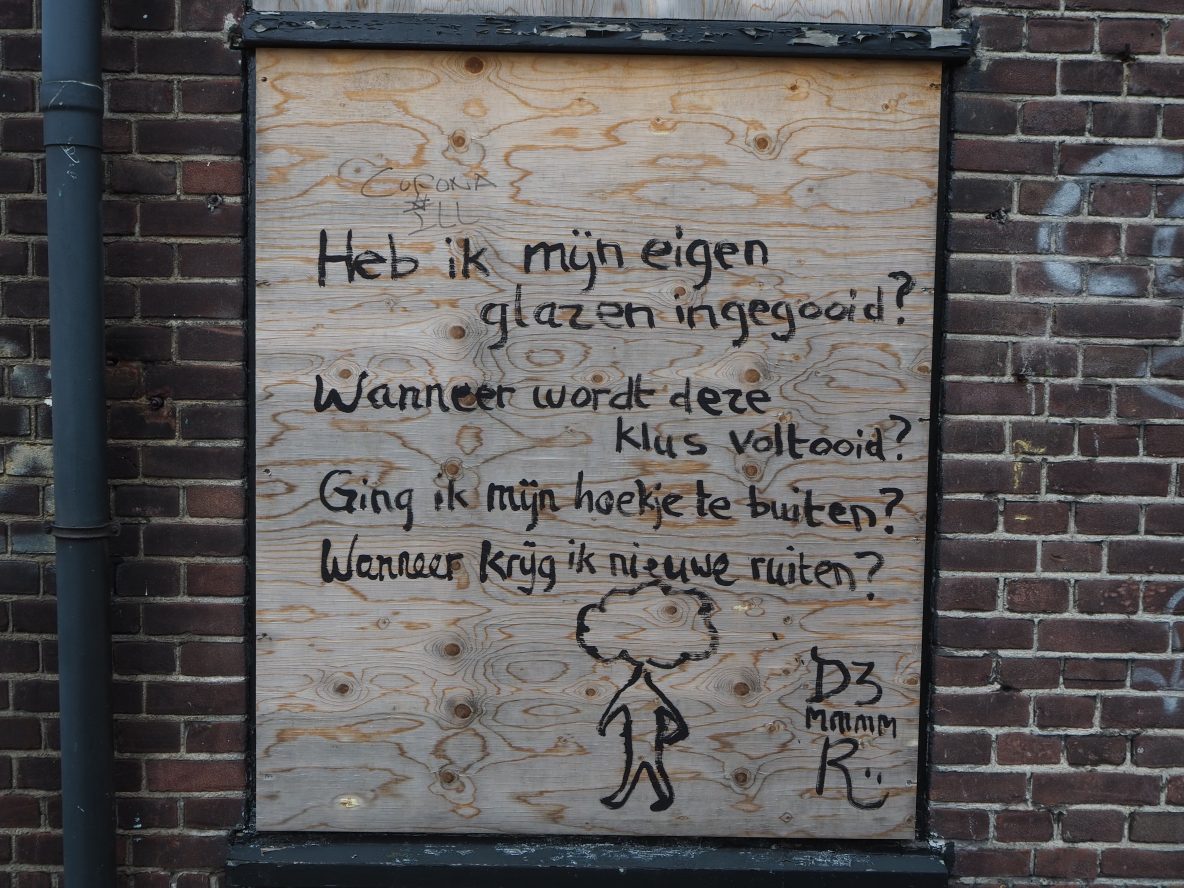 Corona
#
ILL
Heb ik mijn eigen
glazen ingegooid?
Wanneer wordt deze
klus voltooid?
Ging ik mijn hoekje te buiten?
Wanneer krijg ik nieuwe ruiten?
D3
mmmm
R